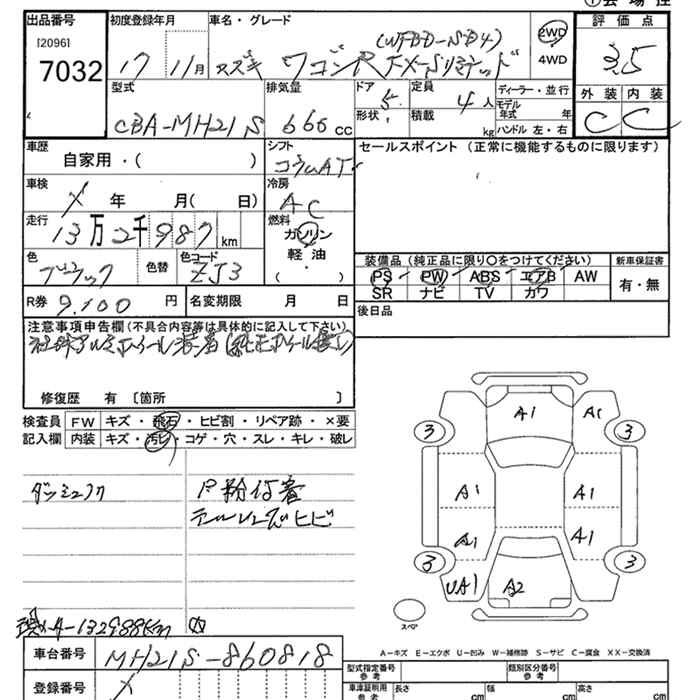 出品番号
[2096]
7032
初度登録年月
17 11月
車名・グレード
(WFBD-N-D4)
スズキ ワゴンR FX-Sリミテッド
2WD
4WD
評価点
3.5
外装 内装
C C
型式
CBA-MH21S
排気量
660 cc
ドア 5
形状
定員 4人
積載 kg
ディーラー・並行
モデル年式 年
ハンドル 左・右
車歴
自家用・( )
シフト
コラムAT
セールスポイント (正常に機能するものに限ります)
車検
X 年 月( 日)
冷房
AC
走行
13万2千987km
燃料
ガソリン
軽油
( )
色
ブラック
色替
色コード
ZJ3
装備品 (純正品に限り○をつけてください)
PS PW ABS エアB AW
SR ナビ TV カワ
新車保証書
有・無
R券 9,100 円
名変期限 月 日
後日品
注意事項申告欄(不具合内容等は具体的に記入して下さい)
社外アルミホイール装着(純正ホイール無し)
修復歴 有 〔箇所 〕
検査員記入欄
FW キズ・飛石・ヒビ割・リペア跡・×要
内装 キズ・汚レ・コゲ・穴・スレ・キレ・破レ
粉付着
テールレンズヒビ
A1 A1
3 3
A1 A1
A1 A1
3 3
UA1 A2
スペア
132988km
A-キズ E-エクボ U-凹み W-補修跡 S-サビ C-腐食 XX-交換済
車台番号 MH21S-860818
登録番号 X
型式指定番号
参考
類別区分番号
参考
車庫証明用
参考
長さ cm
幅 cm
高さ cm